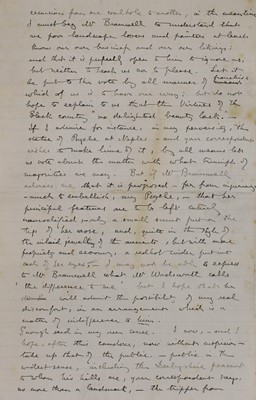 excursions from one railhole to another, in the meantime
I must beg Mr Bramwell to understand that
we poor landscape lovers and painters at least
know our own business and our own likings;
and that it is perfectly open to him to ignore us,
but neither to teach us nor to please. Let it
be put to the vote by all manner of
which of us is to have our way; but do not
hope to explain to us that the Virtues of the
Black country, no delightful beauty lack. —
If I admire for instance, in my perversity, the
statue of Psyche at Naples — and your correspondent
wishes to make lime of it, by all means let
us vote about the matter with what triumph of
majorities we may. But if Mr Bramwell
advises me, that it is proposed — far from injuring
— much to embellish, my Psyche, — that her
principal features are to be left entirely
only a small
tip of her nose, and, quite in the style of
the inlaid jewellery of the ancients, but with more
property and economy, a
each of her eyes, I may not be able to express
to Mr Bramwell what Mr Wordsworth calls
'the difference to me' but I hope that he
will admit the possibility of my real
discomfort, in an arrangement which is a
matter of indifference to him.
Enough said in my own sense. I now, — and I
hope, after this candour, now without suspicion —
take up that of the public, — public in the
widest sense, including the Derbyshire peasant
to whom his hills are, your correspondent says,
no more than a landmark, — the tripper from